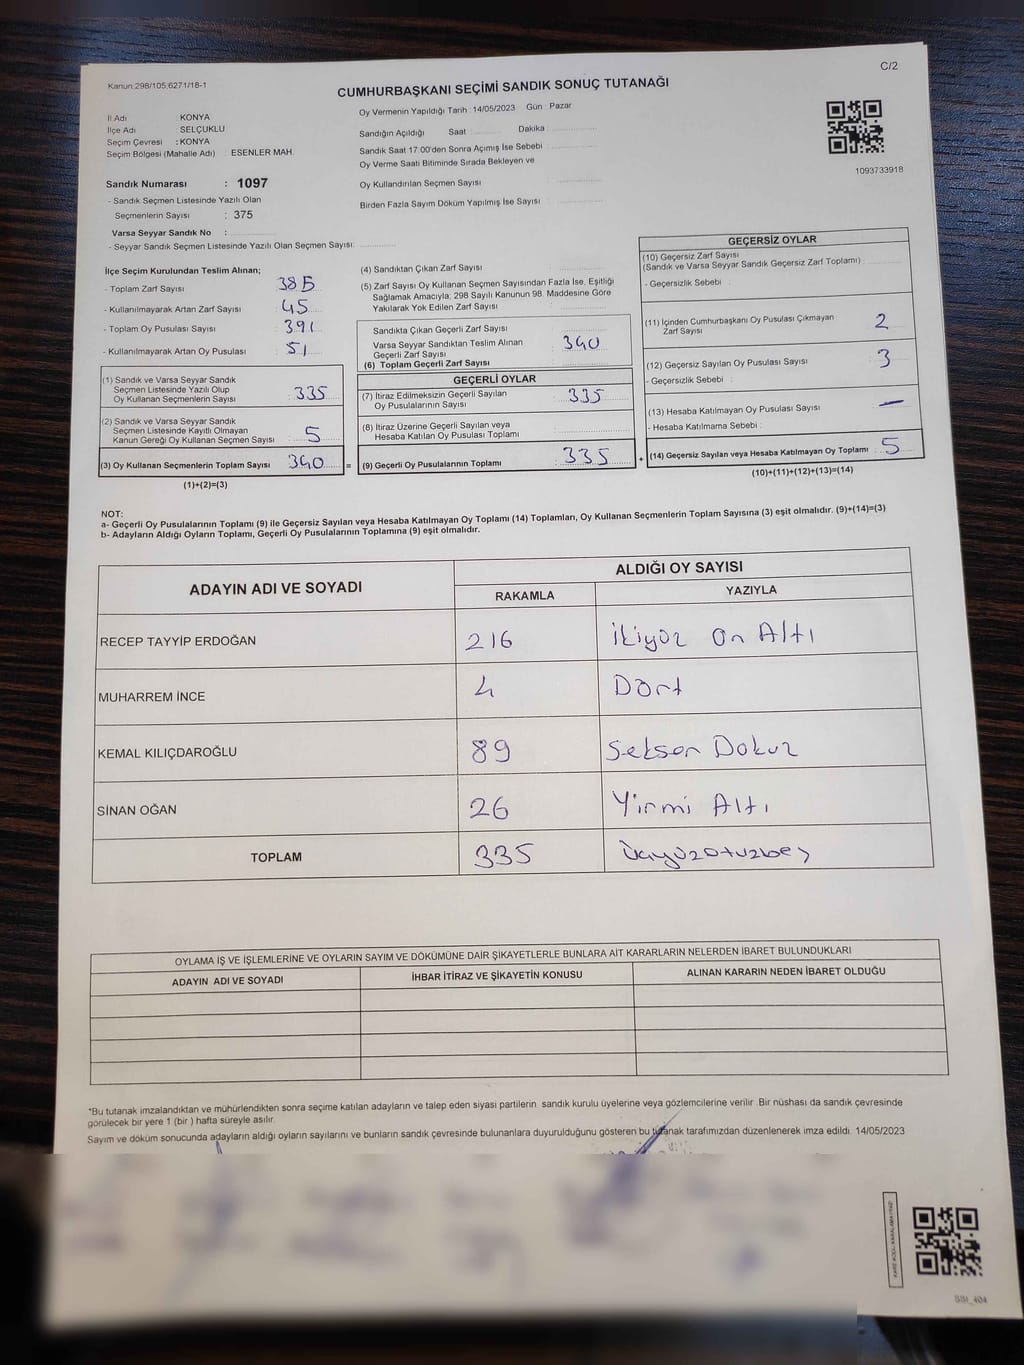 Kanun:298/105;6271/18-1
C/2
CUMHURBAŞKANI SEÇİMİ SANDIK SONUÇ TUTANAĞI
İl Adı : KONYA
İlçe Adı : SELÇUKLU
Seçim Çevresi : KONYA
Seçim Bölgesi (Mahalle Adı) : ESENLER MAH.
Sandık Numarası : 1097
- Sandık Seçmen Listesinde Yazılı Olan
Seçmenlerin Sayısı : 375
Varsa Seyyar Sandık No :
- Seyyar Sandık Seçmen Listesinde Yazılı Olan Seçmen Sayısı:
Oy Vermenin Yapıldığı Tarih : 14/05/2023 Gün : Pazar
Sandığın Açıldığı Saat : Dakika :
Sandık Saat 17:00'den Sonra Açımış İse Sebebi :
Oy Verme Saati Bitiminde Sırada Bekleyen ve
Oy Kullandırılan Seçmen Sayısı :
Birden Fazla Sayım Döküm Yapılmış İse Sayısı :
1093733918
İlçe Seçim Kurulundan Teslim Alınan;
- Toplam Zarf Sayısı : 385
- Kullanılmayarak Artan Zarf Sayısı : 45
- Toplam Oy Pusulası Sayısı : 391
- Kullanılmayarak Artan Oy Pusulası : 51
(1) Sandık ve Varsa Seyyar Sandık
Seçmen Listesinde Yazılı Olup
Oy Kullanan Seçmenlerin Sayısı : 335
(2) Sandık ve Varsa Seyyar Sandık
Seçmen Listesinde Kayıtlı Olmayan
Kanun Gereği Oy Kullanan Seçmen Sayısı : 5
(3) Oy Kullanan Seçmenlerin Toplam Sayısı : 340 =
(1)+(2)=(3)
(4) Sandıktan Çıkan Zarf Sayısı :
(5) Zarf Sayısı Oy Kullanan Seçmen Sayısından Fazla İse, Eşitliği
Sağlamak Amacıyla; 298 Sayılı Kanunun 98. Maddesine Göre
Yakılarak Yok Edilen Zarf Sayısı :
Sandıkta Çıkan Geçerli Zarf Sayısı :
Varsa Seyyar Sandıktan Teslim Alınan
Geçerli Zarf Sayısı : 340
(6) Toplam Geçerli Zarf Sayısı :
GEÇERLİ OYLAR
(7) İtiraz Edilmeksizin Geçerli Sayılan
Oy Pusulalarının Sayısı : 335
(8) İtiraz Üzerine Geçerli Sayılan veya
Hesaba Katılan Oy Pusulası Toplamı :
(9) Geçerli Oy Pusulalarının Toplamı : 335 +
GEÇERSİZ OYLAR
(10) Geçersiz Zarf Sayısı
(Sandık ve Varsa Seyyar Sandık Geçersiz Zarf Toplamı) :
- Geçersizlik Sebebi :
(11) İçinden Cumhurbaşkanı Oy Pusulası Çıkmayan
Zarf Sayısı : 2
(12) Geçersiz Sayılan Oy Pusulası Sayısı : 3
- Geçersizlik Sebebi :
(13) Hesaba Katılmayan Oy Pusulası Sayısı : —
- Hesaba Katılmama Sebebi :
(14) Geçersiz Sayılan veya Hesaba Katılmayan Oy Toplamı : 5
(10)+(11)+(12)+(13)=(14)
NOT:
a- Geçerli Oy Pusulalarının Toplamı (9) ile Geçersiz Sayılan veya Hesaba Katılmayan Oy Toplamı (14) Toplamları, Oy Kullanan Seçmenlerin Toplam Sayısına (3) eşit olmalıdır. (9)+(14)=(3)
b- Adayların Aldığı Oyların Toplamı, Geçerli Oy Pusulalarının Toplamına (9) eşit olmalıdır.
ADAYIN ADI VE SOYADI
ALDIĞI OY SAYISI
RAKAMLA YAZIYLA
RECEP TAYYİP ERDOĞAN 216 İkiyüz On Altı
MUHARREM İNCE 4 Dört
KEMAL KILIÇDAROĞLU 89 Seksen Dokuz
SİNAN OĞAN 26 Yirmi Altı
TOPLAM 335 Üçyüzotuzbeş
OYLAMA İŞ VE İŞLEMLERİNE VE OYLARIN SAYIM VE DÖKÜMÜNE DAİR ŞİKAYETLERLE BUNLARA AİT KARARLARIN NELERDEN İBARET BULUNDUKLARI
ADAYIN ADI VE SOYADI İHBAR İTİRAZ VE ŞİKAYETİN KONUSU ALINAN KARARIN NEDEN İBARET OLDUĞU
*Bu tutanak imzalandıktan ve mühürlendikten sonra seçime katılan adayların ve talep eden siyasi partilerin sandık kurulu üyelerine veya gözlemcilerine verilir. Bir nüshası da sandık çevresinde
görülecek bir yere 1 (bir ) hafta süreyle asılır.
Sayım ve döküm sonucunda adayların aldığı oyların sayılarını ve bunların sandık çevresinde bulunanlara duyurulduğunu gösteren bu tutanak tarafımızdan düzenlenerek imza edildi. 14/05/2023